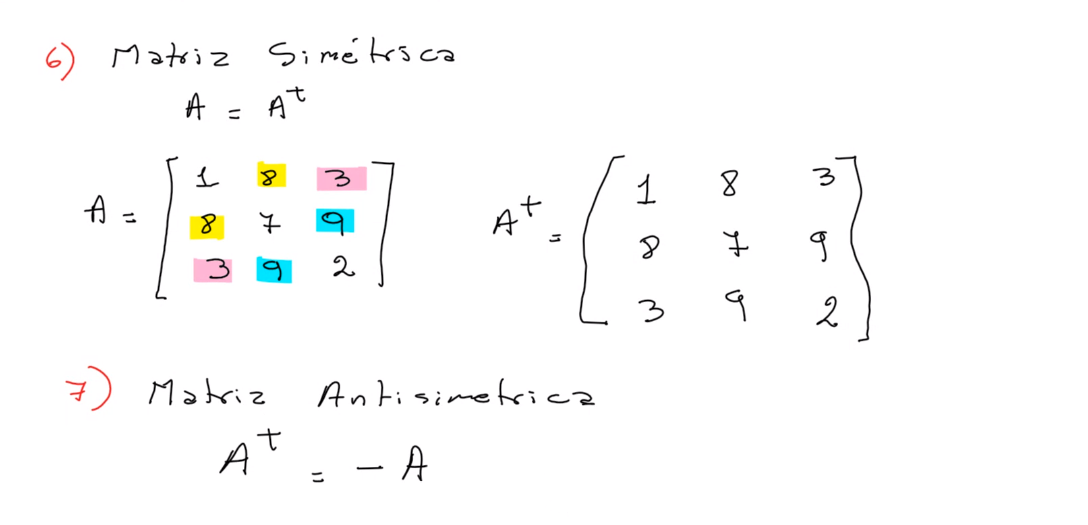 6) Matriz Simétrica
A = Aᵗ
A = [ 1 8 3
8 7 9
3 9 2 ]
Aᵗ = [ 1 8 3
8 7 9
3 9 2 ]
7) Matriz Antisimetrica
Aᵗ = - A